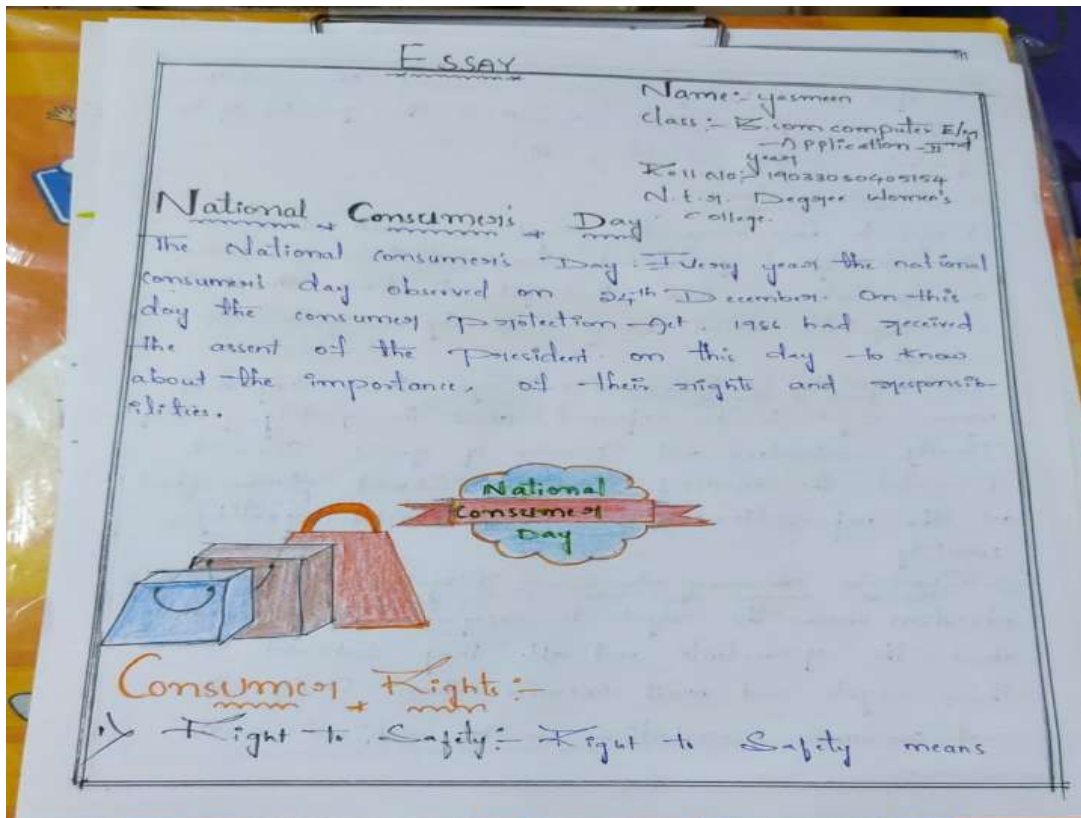 ESSAY
Name:- yasmeen
class:- B.com computer E/m
Application - IInd
year
Roll No:- 19033050405154
N.t.r. Degree Women's
College.
National Consumer's Day
The National consumer's Day. Every year the national
consumer's day observed on 24th December. On this
day the consumer protection Act. 1986 had received
the assent of the President on this day to know
about the importance, of their rights and responsib-
ilities.
National
Consumer
Day
Consumer Rights:-
1) Right to Safety:- Right to Safety means